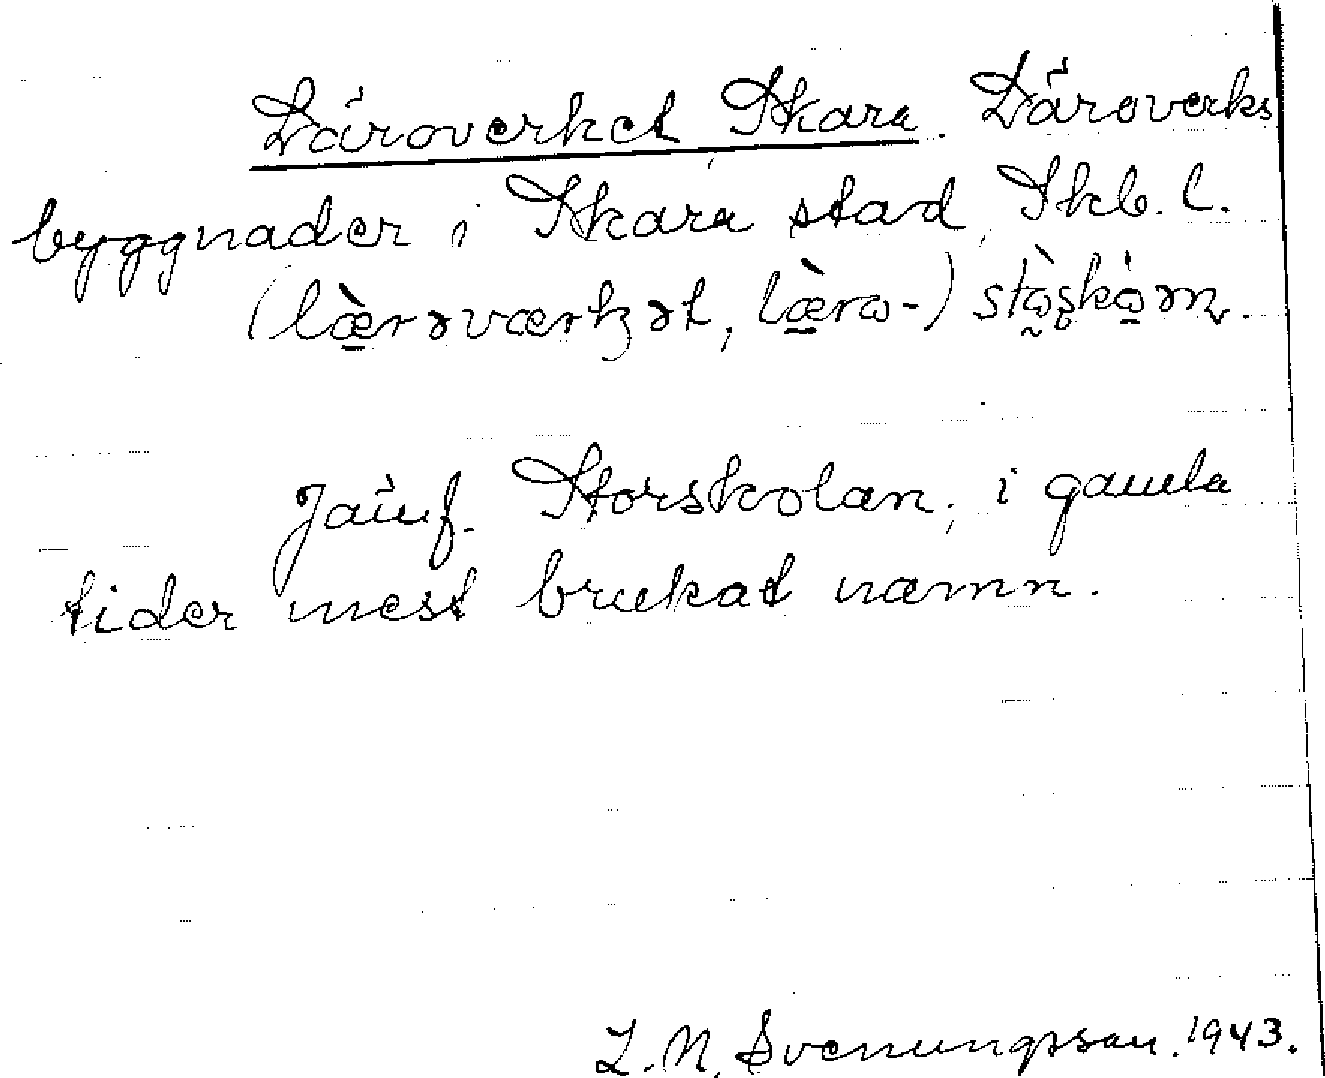 Läroverket, Skara. Läroverks
byggnader i Skara stad, Skb. l.
(læ̀rəværkət, læ̀rω-) stòskòm.
Jämf. Storskolan, i gamla
tider mest brukat namn.
L. N. Svenungsson. 1943.